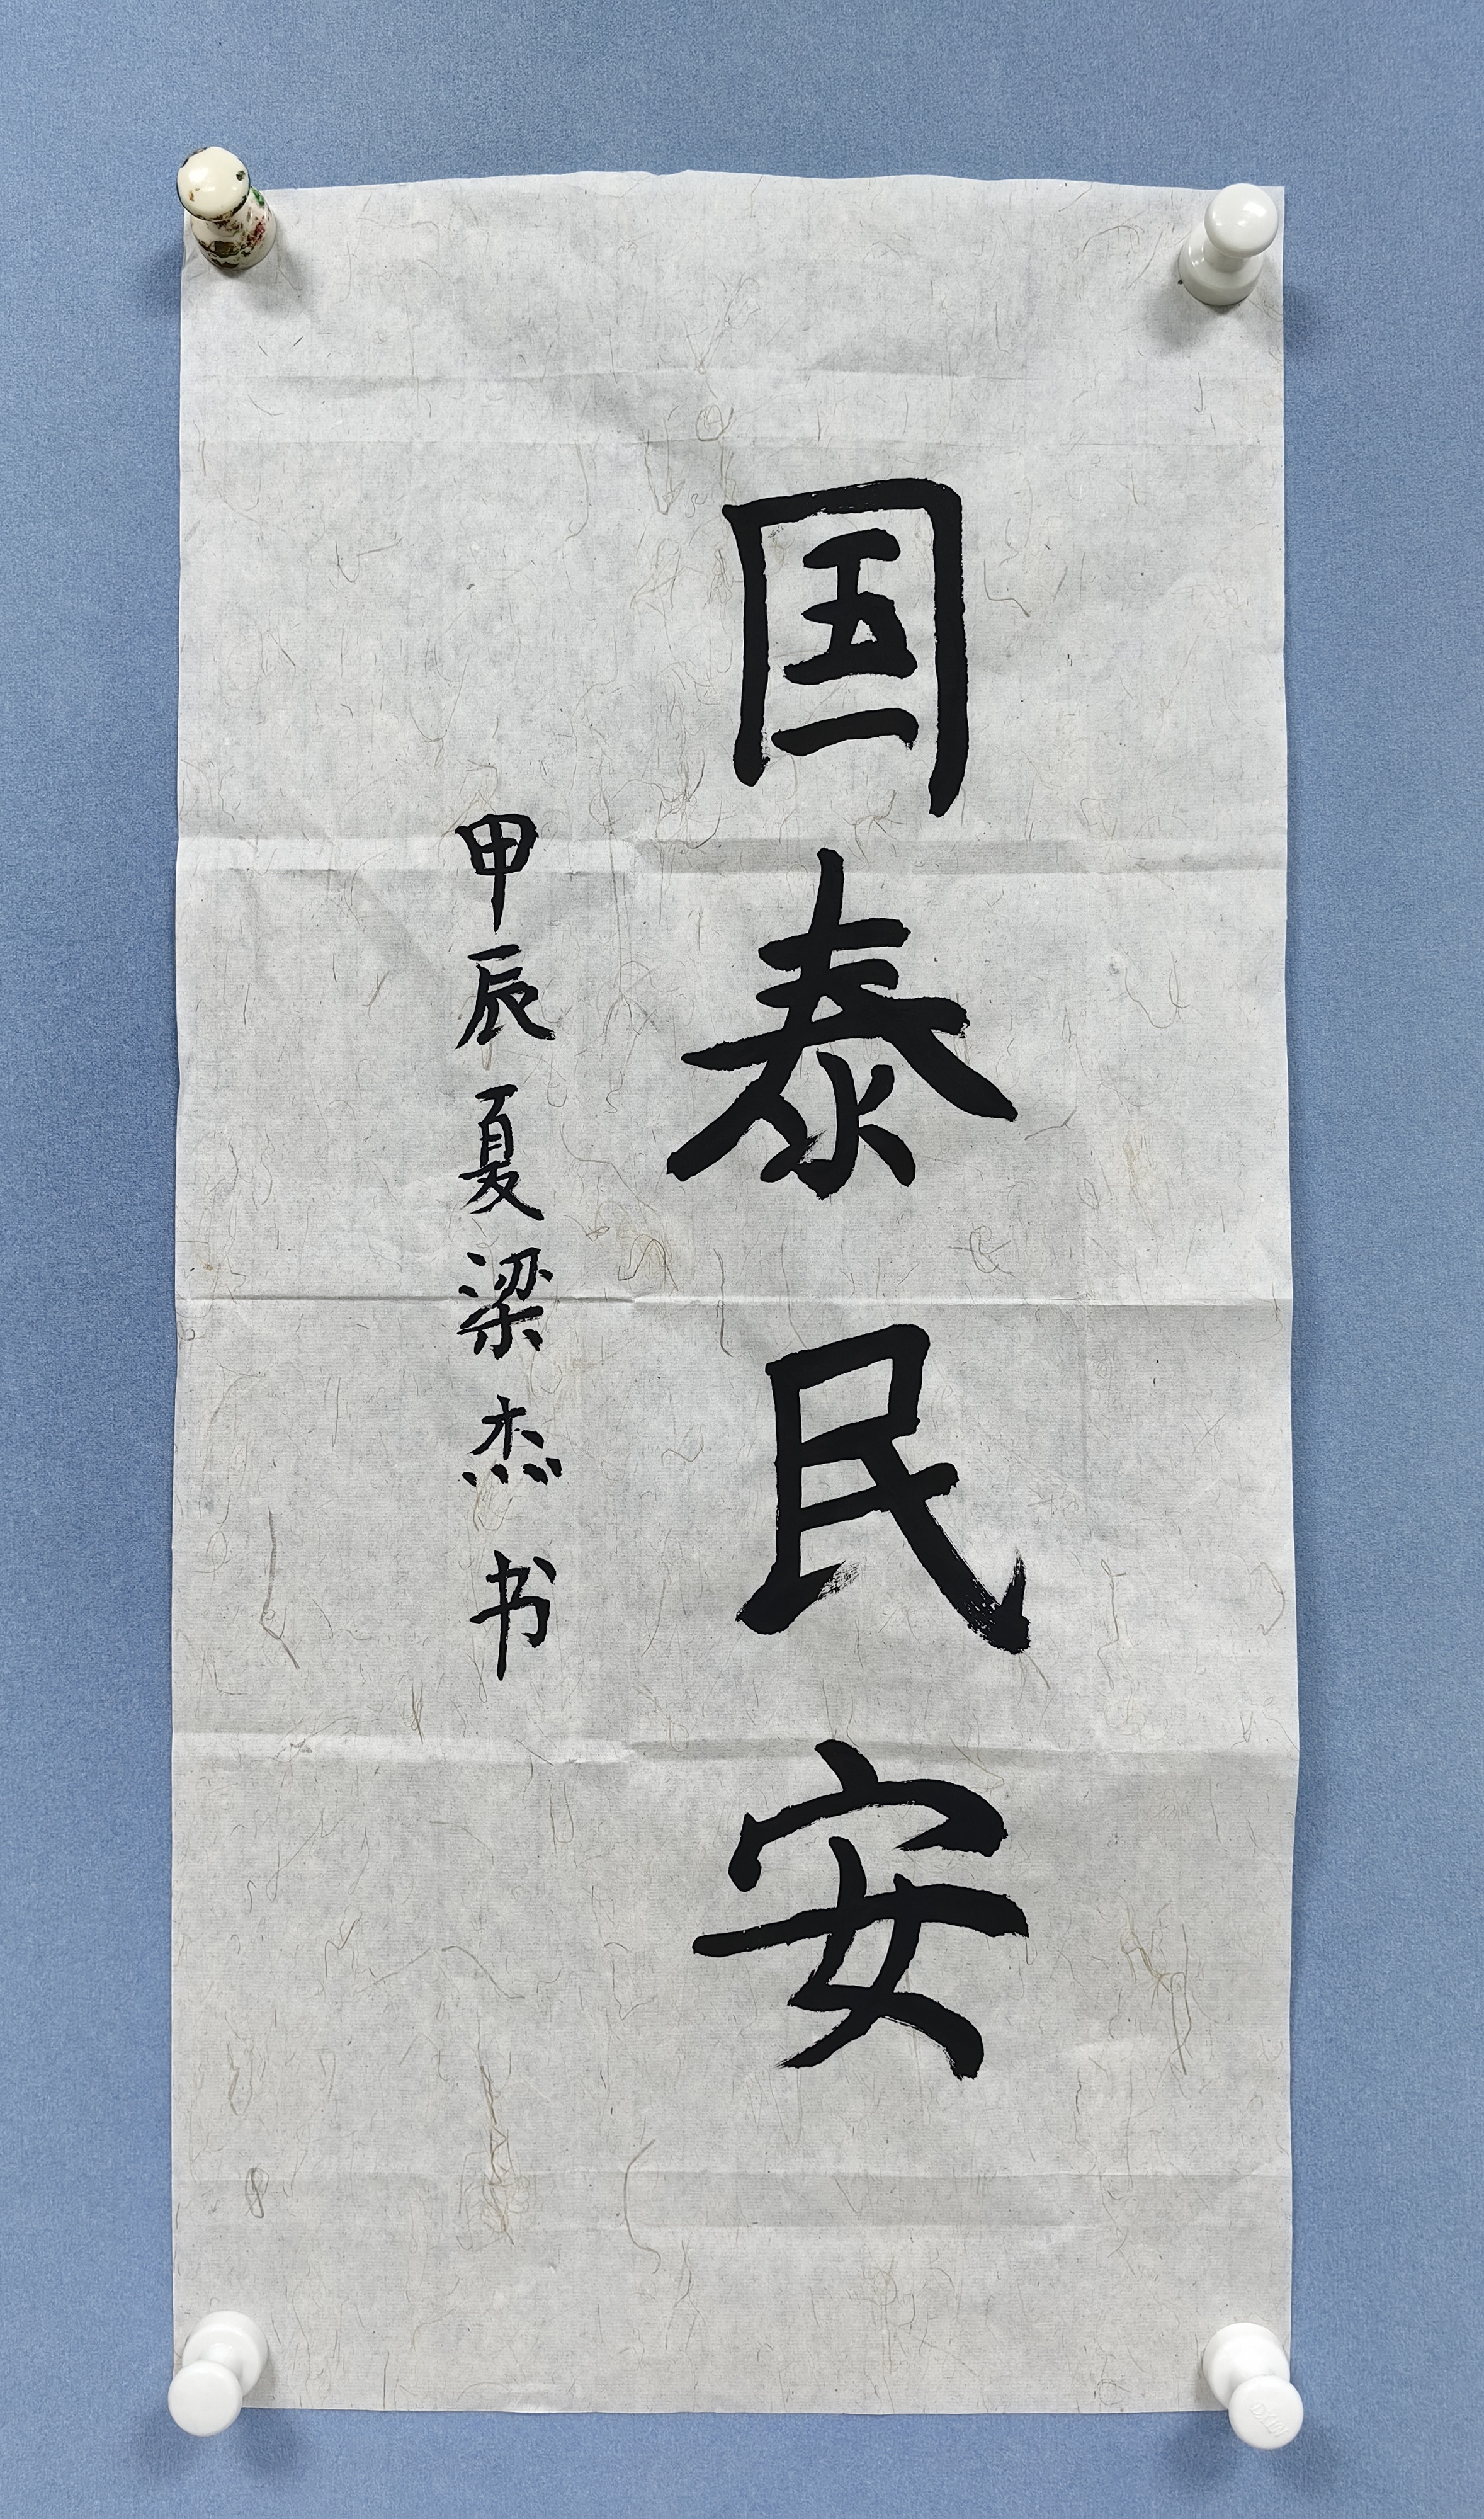 国泰民安
甲辰夏梁杰书